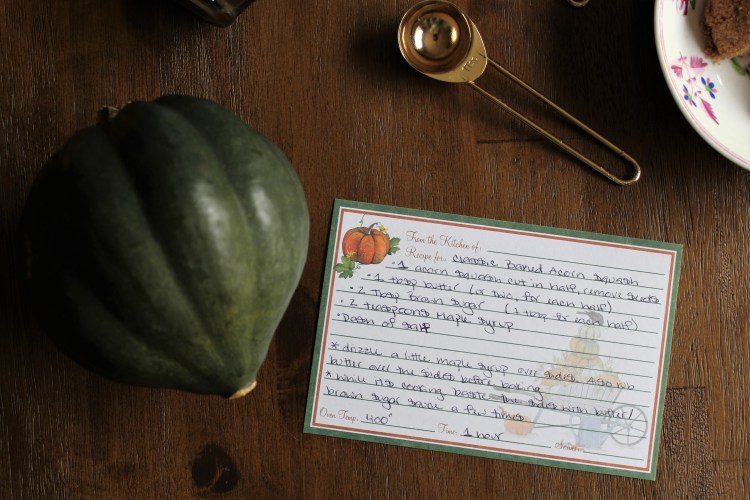 From the Kitchen of:
Recipe for: Classic Baked Acorn Squash
• 1 acorn squash cut in half, remove seeds
• 1 tbsp butter (or two, for each half)
• 2 Tbsp Brown Sugar (1 tbsp for each half)
• 2 teaspoons Maple Syrup
• Dash of salt
* drizzle a little maple syrup over sides. Also rub
butter over the sides before baking
* while its cooking baste the sides with butter/
brown sugar sauce a few times
Oven Temp: 400° Time: 1 hour